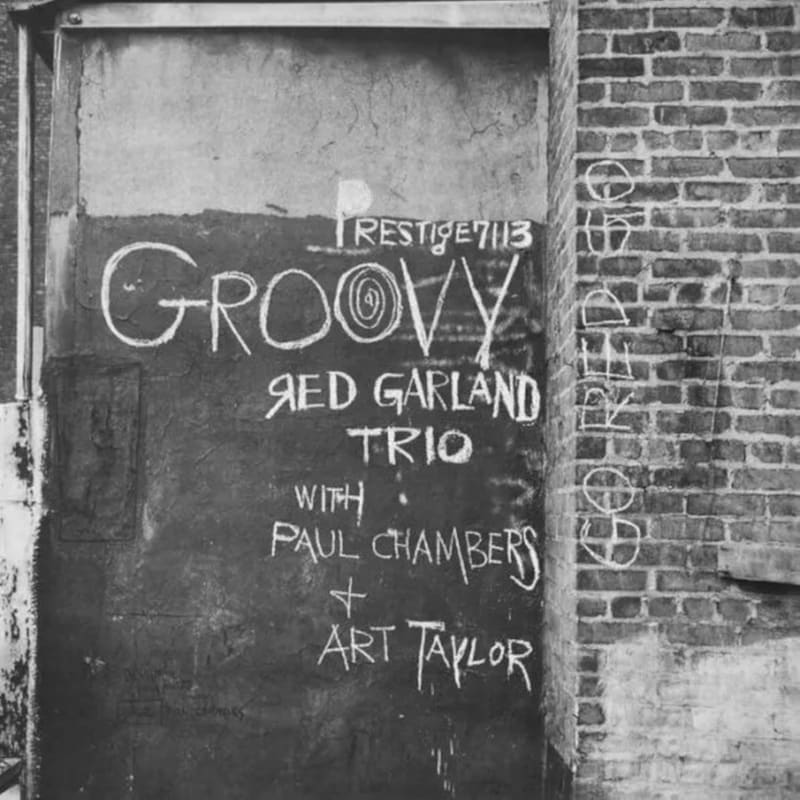 PRESTIGE7113
GROOVY
RED GARLAND
TRIO
WITH
PAUL CHAMBERS
+
ART TAYLOR
GO RED GO